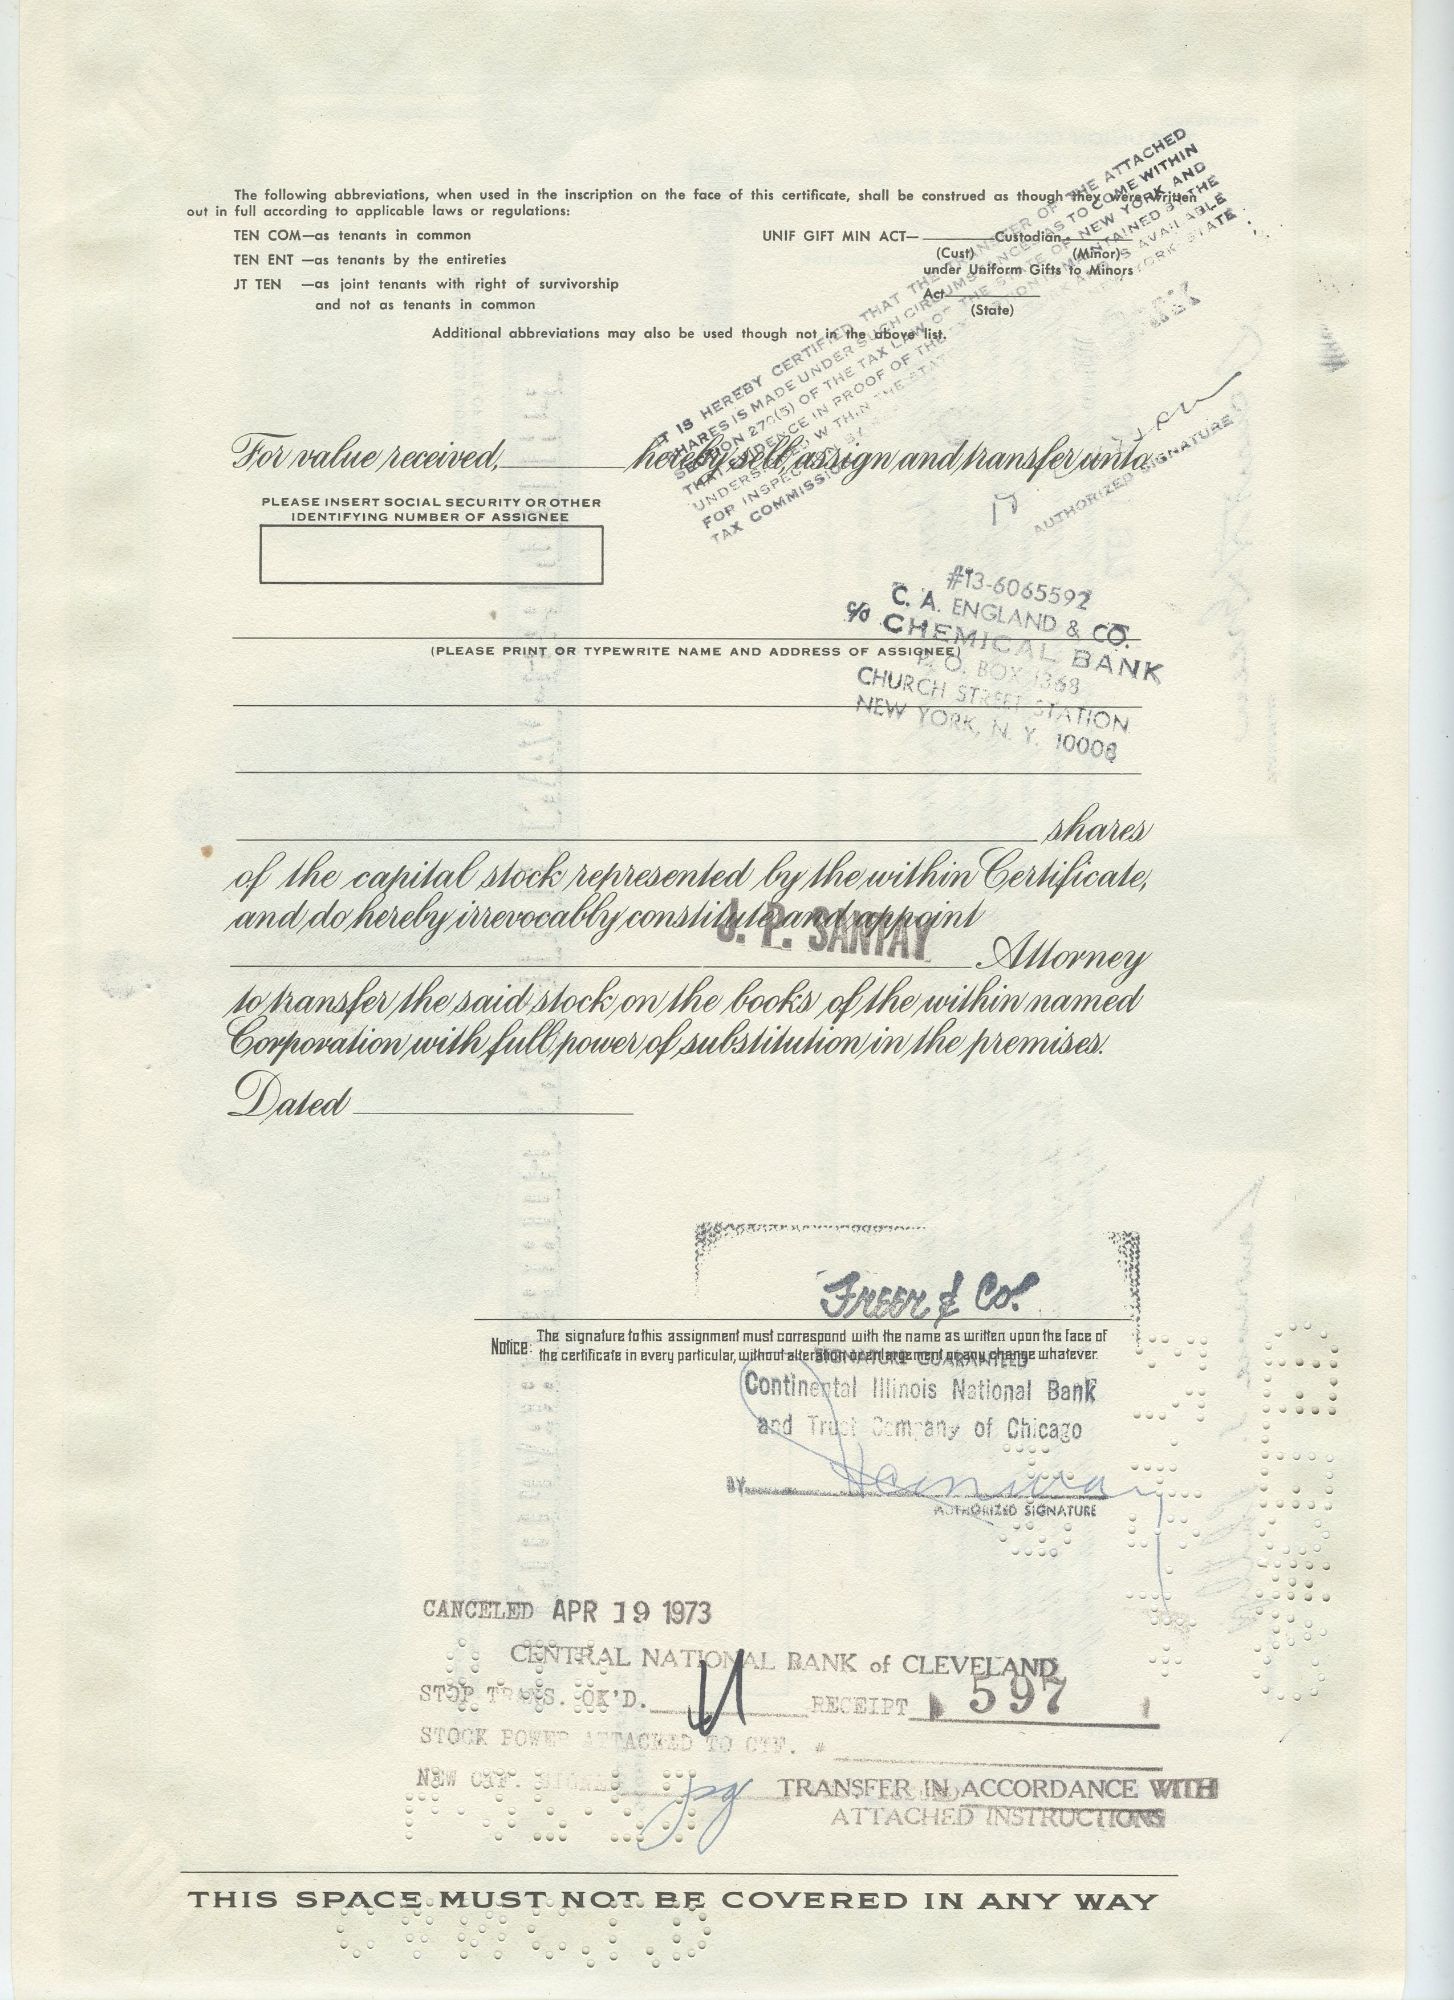 The following abbreviations, when used in the inscription on the face of this certificate, shall be construed as though they were written
out in full according to applicable laws or regulations:
TEN COM—as tenants in common
TEN ENT —as tenants by the entireties
JT TEN —as joint tenants with right of survivorship
and not as tenants in common
UNIF GIFT MIN ACT—________Custodian________
(Cust) (Minor)
under Uniform Gifts to Minors
Act________
(State)
Additional abbreviations may also be used though not in the above list.
IT IS HEREBY CERTIFIED THAT THE TRANSFER OF THE ATTACHED
SHARES IS MADE UNDER SUCH CIRCUMSTANCES AS TO COME WITHIN
SECTION 270(5) OF THE TAX LAW OF THE STATE OF NEW YORK AND
THAT EVIDENCE IN PROOF OF THE MAINTAINED BY THE
UNDERSIGNED WITHIN THE STATE AVAILABLE
FOR INSPECTION BY YORK STATE
TAX COMMISSION
AUTHORIZED SIGNATURE
For value received,________hereby sell, assign and transfer unto
PLEASE INSERT SOCIAL SECURITY OR OTHER
IDENTIFYING NUMBER OF ASSIGNEE
#13-6065592
C. A. ENGLAND & CO.
c/o CHEMICAL BANK
P. O. BOX 1368
CHURCH STREET STATION
NEW YORK, N. Y. 10008
(PLEASE PRINT OR TYPEWRITE NAME AND ADDRESS OF ASSIGNEE)
________shares
of the capital stock represented by the within Certificate,
and do hereby irrevocably constitute and appoint
J. P. SANTAY
________Attorney
to transfer the said stock on the books of the within named
Corporation with full power of substitution in the premises.
Dated________
Freer & Co.
Notice: The signature to this assignment must correspond with the name as written upon the face of
the certificate in every particular, without alteration or enlargement or any change whatever.
SIGNATURE GUARANTEED
Continental Illinois National Bank
and Trust Company of Chicago
BY
AUTHORIZED SIGNATURE
CANCELED APR 19 1973
CENTRAL NATIONAL BANK of CLEVELAND
STOP TRANS. OK'D.________RECEIPT 597
STOCK POWER ATTACHED TO CTF. #
NEW CTF.
TRANSFER IN ACCORDANCE WITH
ATTACHED INSTRUCTIONS
THIS SPACE MUST NOT BE COVERED IN ANY WAY